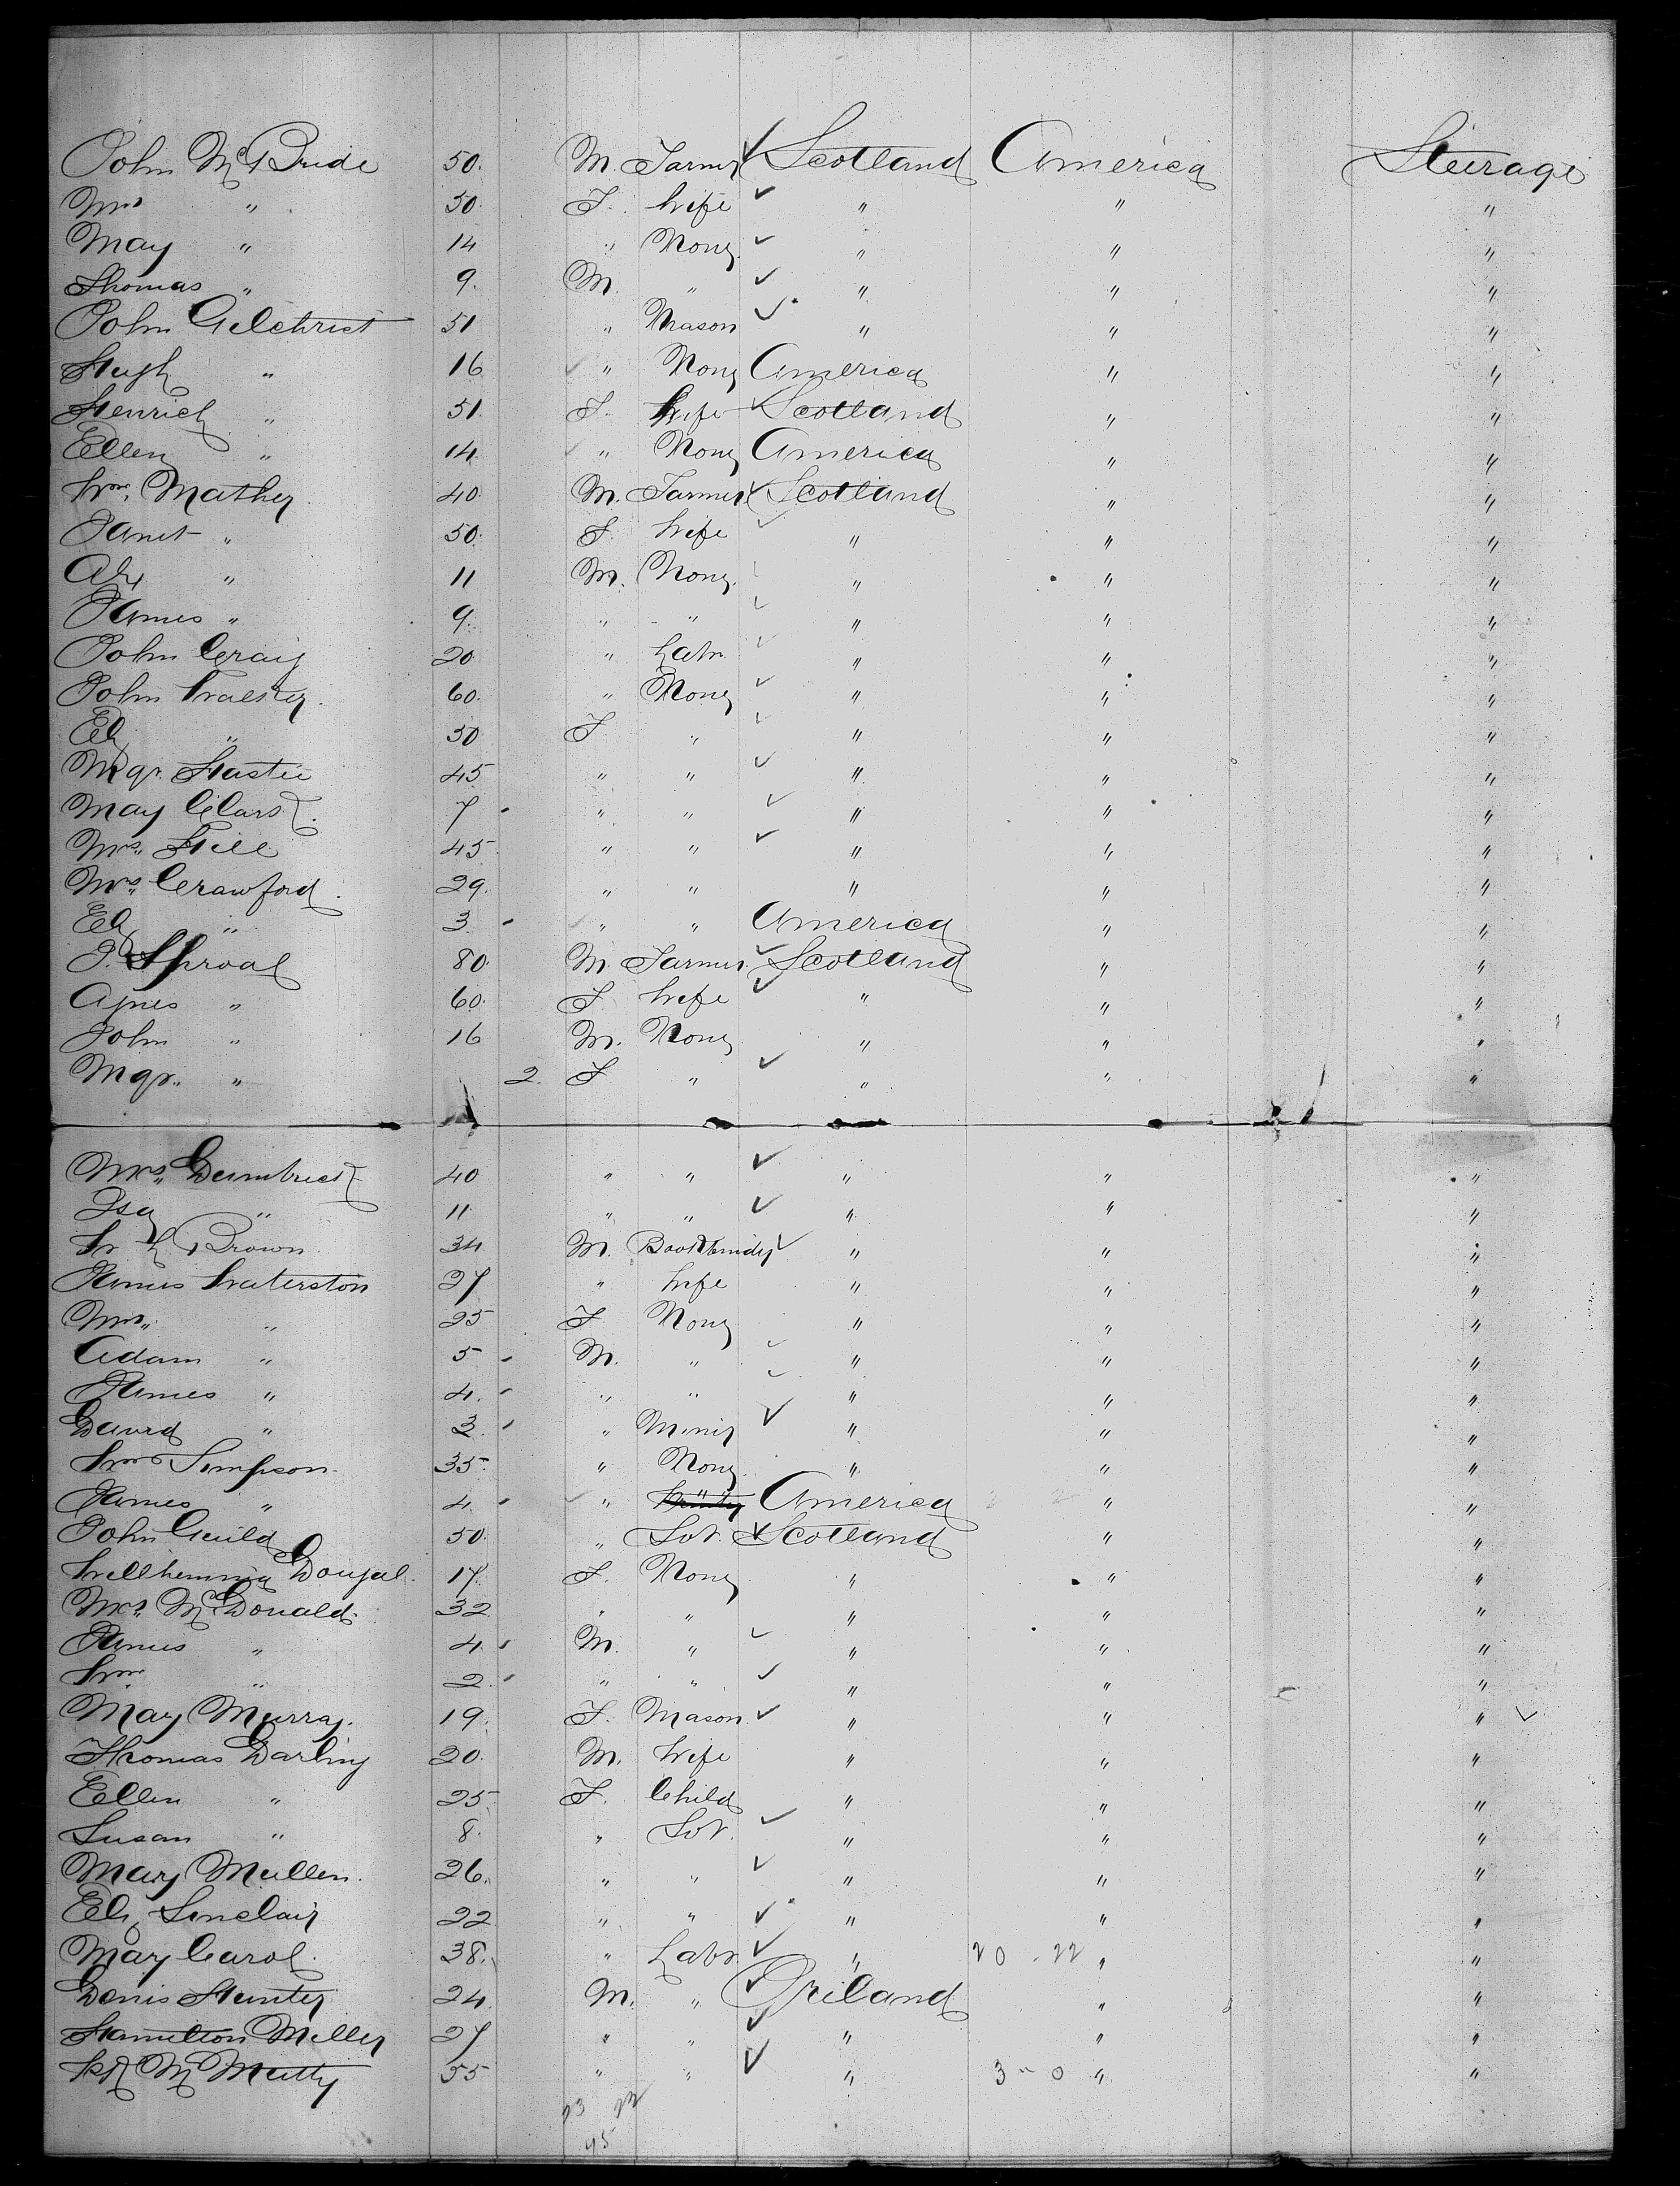 John McBride 50. M. Farmer Scotland America Steerage
Mrs " 50. F. Wife " " "
May " 14 " None " " "
Thomas " 9. M. " " " "
John Gilchrist 51 " Mason " " "
Hugh " 16 " None America " "
Henrich " 51. F. Wife Scotland " "
Ellen " 14 " None America " "
Wm. Mather 40. M. Farmer Scotland " "
Janet " 50. F. Wife " " "
Alx " 11 M. None " " "
James " 9. " " " " "
John Craig 20 " Labr. " " "
John 60. " None " " "
Eliz " 50 F " " " "
Mgr. Hastie 45 " " " " "
May Clark. 7 " " " " "
Mrs. Hill 45 " " " " "
Mrs. Crawford. 29. " " " " "
Eliz " 3 " " America " "
J. Sproal 80. M. Farmer Scotland " "
Agnes " 60. F. Wife " " "
John " 16 M. None " " "
Mgr. " 2. F " " " "
Mrs. 40 " " " " "
Isa " 11 " " " " "
W L Brown. 34 M. Bookbinder " " "
James Waterston 27 " Wife " " "
Mrs. " 25 F None " " "
Adam " 5 M. " " " "
James " 4. " " " " "
David " 3. " Miner " " "
Wm Simpson. 35. " None " " "
James " 4. " America " "
John Guild 50. " Svt. Scotland " "
Willhemina Dougal. 17. F. None " " "
Mrs. McDonald. 32 " " " " "
James " 4. M. " " " "
Wm " 2. " " " " "
May Murray. 19. F. Mason " " "
Thomas Darling 20. M. Wife " " "
Ellen " 25 F. Child " " "
Susan " 8. " Svt. " " "
Mary Mullen. 26. " " " " "
Eliz Sinclair 22 " " " " "
Mary Carol. 38. " Labr. " 20 - 22 " "
Denis Hunter 24. M. " Oriland " "
Hamilton Miller 27 " " " " "
McMutty 55 " " " 3 - 0 " "
23 22
45